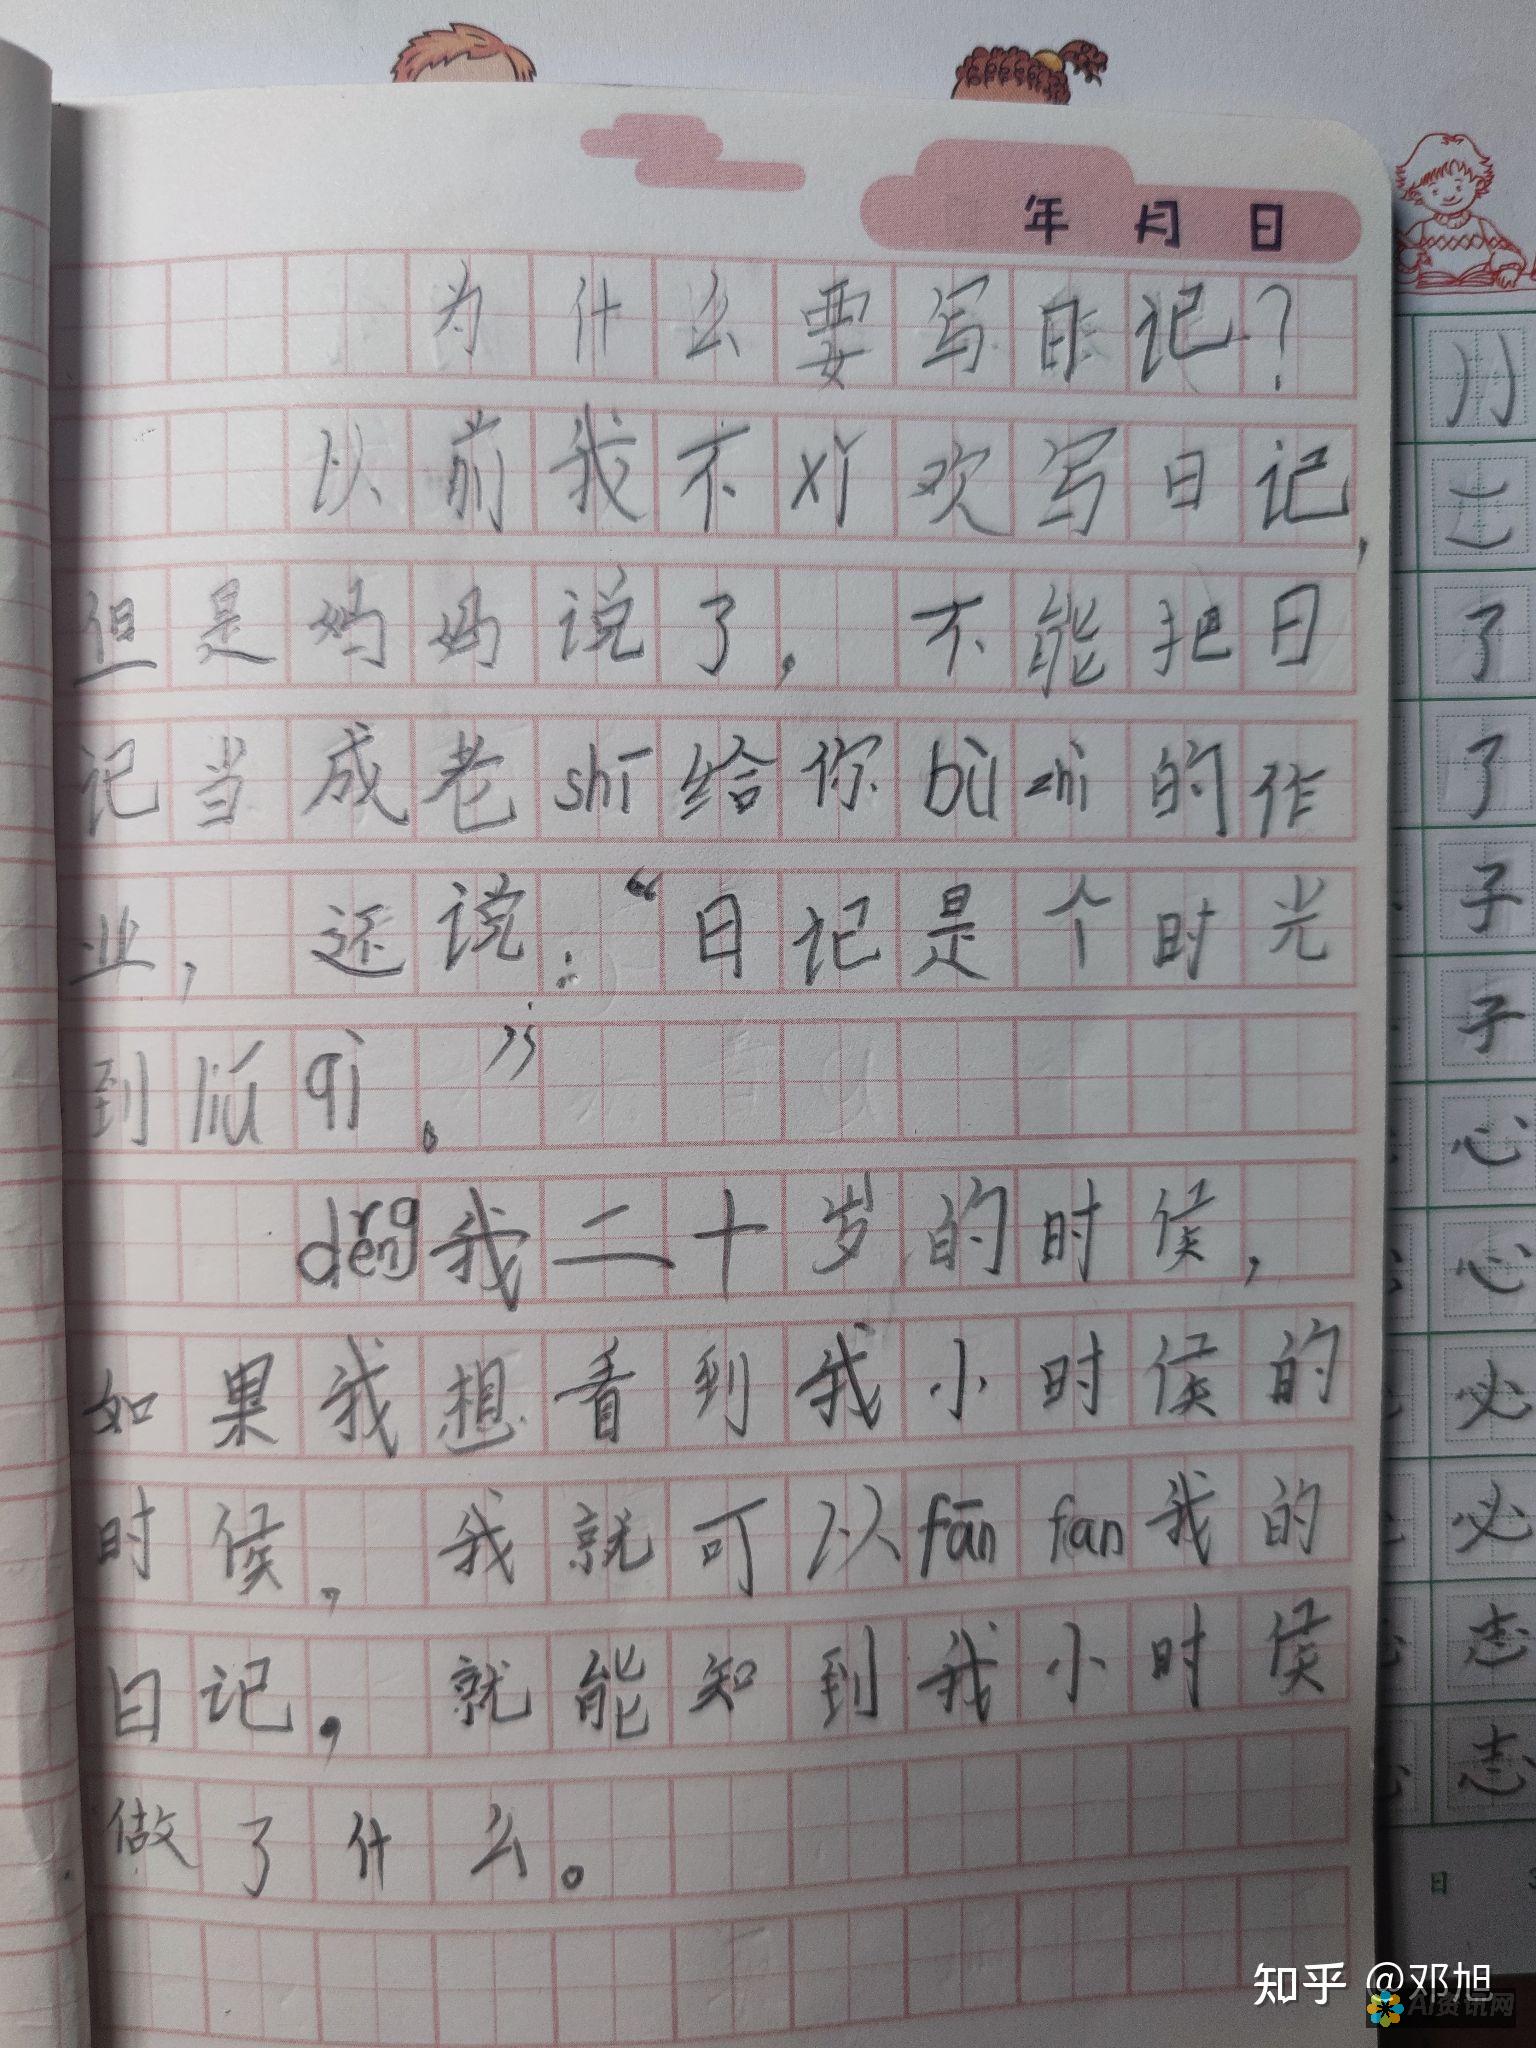 年 月 日
为什么要写日记?
以前我不xǐ欢写日记,
但是妈妈说了,不能把日
记当成老shī给你bù zhì的作
业,还说:“日记是个时光
到liú qì。”
děng我二十岁的时侯,
如果我想看到我小时侯的
时侯,我就可以fān fan我的
日记,就能知到我小时侯
做了什么。
了
了
子
子
心
心
必
必
志
志
日
知乎 @邓旭
AI资讯网